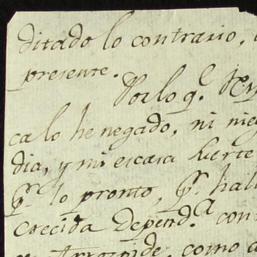 ditado lo contrario,
presente.
Por lo q.^e
ca lo he negado, ni
dia, y mi escasa suerte
p.^r lo pronto, p.^r hall
crecida depend.^a con
como